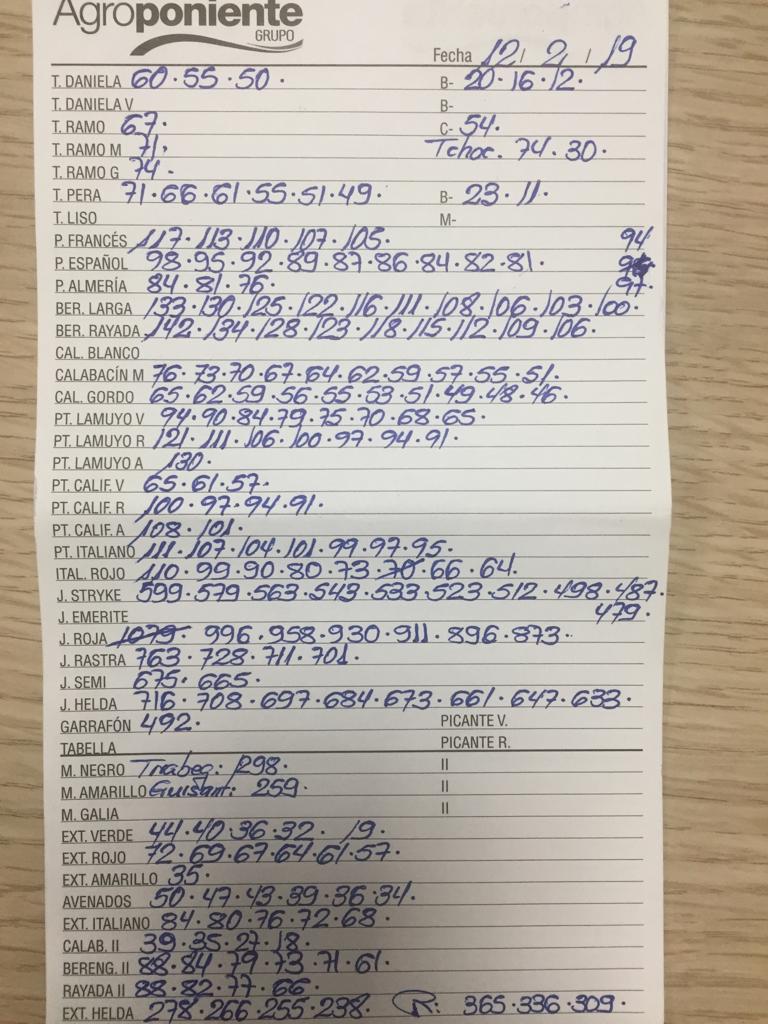 Agroponiente
GRUPO
Fecha 12 / 2 / 19
T. DANIELA 60·55·50· B- 20·16·12·
T. DANIELA V B-
T. RAMO 67· C- 54·
T. RAMO M 71· Tchoc. 74·30·
T. RAMO G 74·
T. PERA 71·66·61·55·51·49· B- 23·11·
T. LISO M-
P. FRANCÉS 117·113·110·107·105· 94
P. ESPAÑOL 98·95·92·89·87·86·84·82·81·
P. ALMERÍA 84·81·76· 97·
BER. LARGA 133·130·125·122·116·111·108·106·103·100·
BER. RAYADA 142·134·128·123·118·115·112·109·106·
CAL. BLANCO
CALABACÍN M 76·73·70·67·64·62·59·57·55·51·
CAL. GORDO 65·62·59·56·55·53·51·49·48·46·
PT. LAMUYO V 94·90·84·79·75·70·68·65·
PT. LAMUYO R 121·111·106·100·97·94·91·
PT. LAMUYO A 130·
PT. CALIF. V 65·61·57·
PT. CALIF. R 100·97·94·91·
PT. CALIF. A 108·101·
PT. ITALIANO 111·107·104·101·99·97·95·
ITAL. ROJO 110·99·90·80·73·70·66·64·
J. STRYKE 599·579·563·543·533·523·512·498·487·
J. EMERITE 479·
J. ROJA 1079· 996·958·930·911·896·873·
J. RASTRA 763·728·711·701·
J. SEMI 675·665·
J. HELDA 716·708·697·684·673·661·647·633·
GARRAFÓN 492· PICANTE V.
TABELLA PICANTE R.
M. NEGRO Trabeg: 298· II
M. AMARILLO Guisant: 259· II
M. GALIA II
EXT. VERDE 44·40·36·32· 19·
EXT. ROJO 72·69·67·64·61·57·
EXT. AMARILLO 35·
AVENADOS 50·47·43·39·36·34·
EXT. ITALIANO 84·80·76·72·68·
CALAB. II 39·35·27·18·
BERENG. II 88·84·79·73·71·61·
RAYADA II 88·82·77·66·
EXT. HELDA 278·266·255·238· R: 365·336·309·